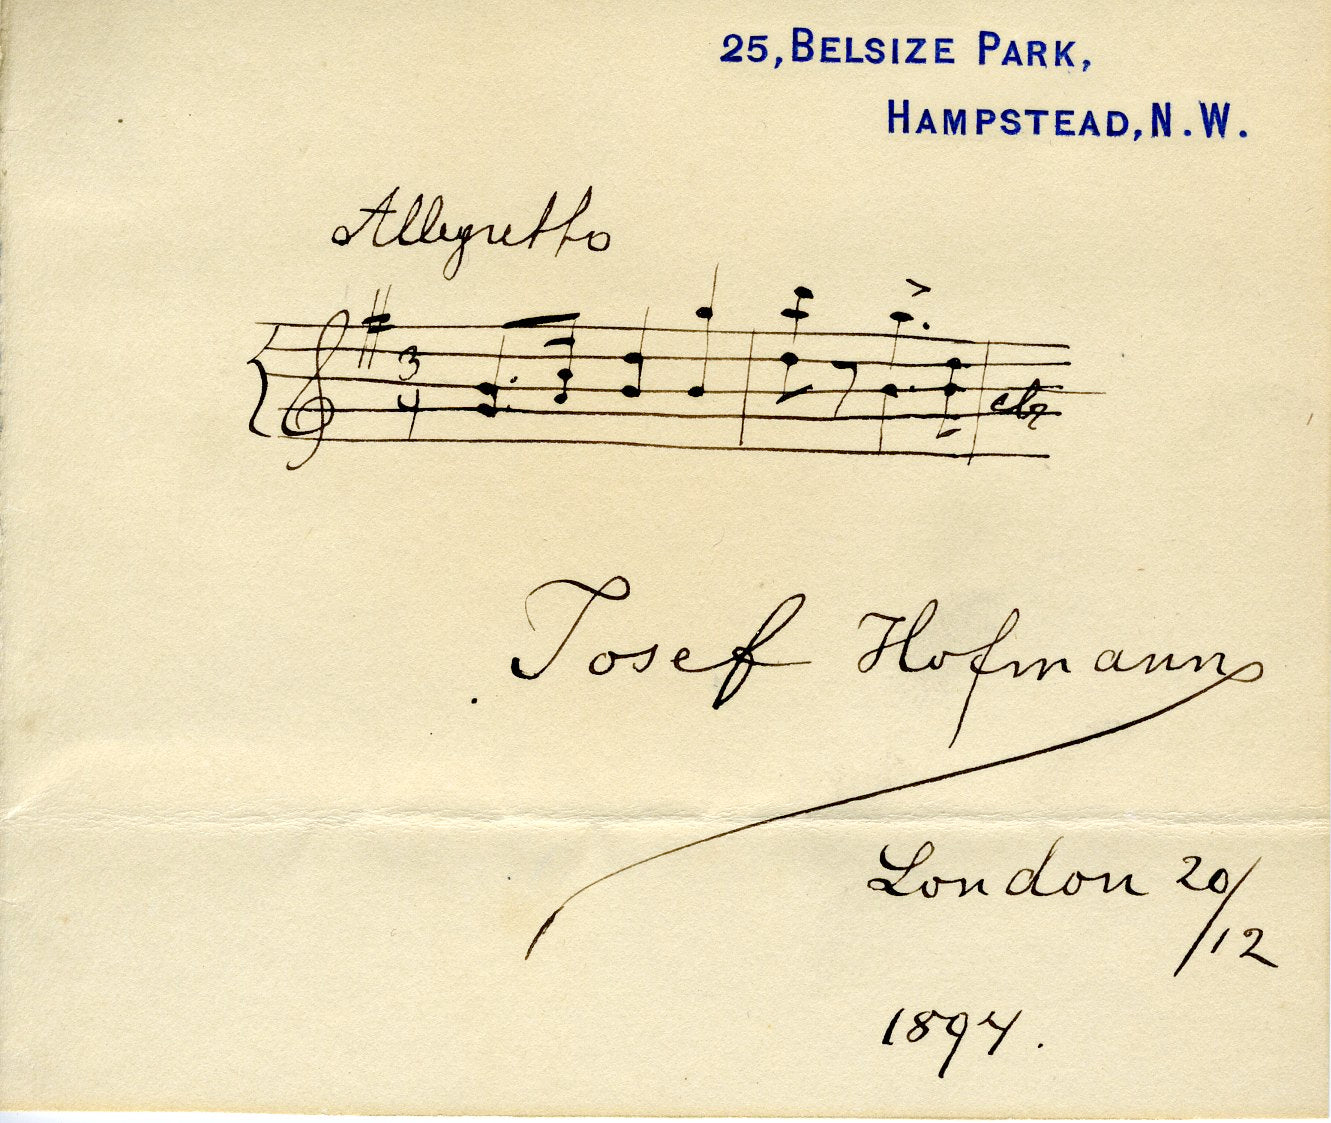 25, BELSIZE PARK,
HAMPSTEAD, N.W.
Allegretto
3
4
etc
Josef Hofmann
London 20/
/12
1894.